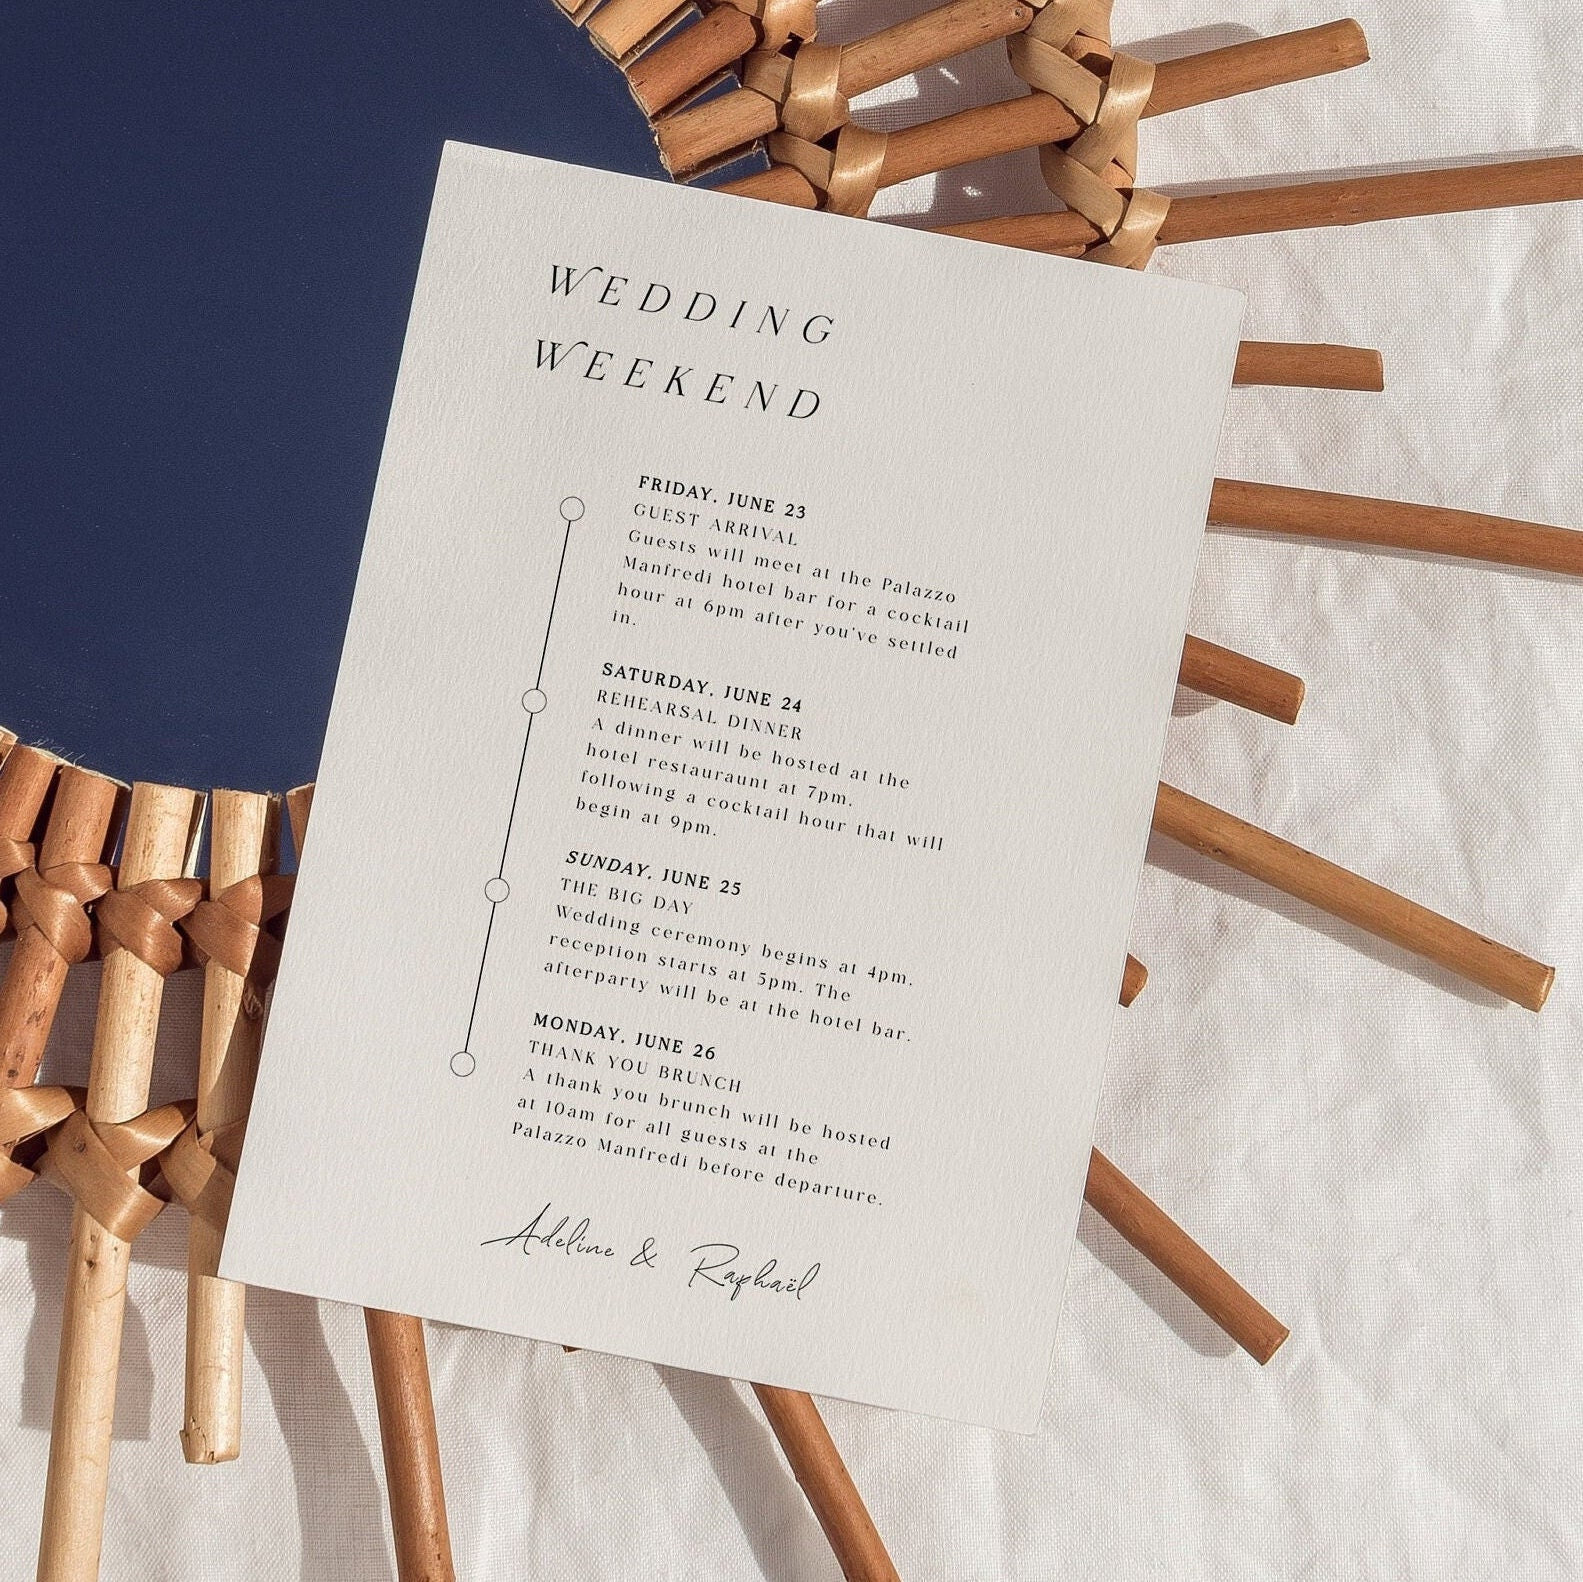 WEDDING
WEEKEND
FRIDAY, JUNE 23
GUEST ARRIVAL
Guests will meet at the Palazzo
Manfredi hotel bar for a cocktail
hour at 6pm after you've settled
in.
SATURDAY, JUNE 24
REHEARSAL DINNER
A dinner will be hosted at the
hotel restauraunt at 7pm.
following a cocktail hour that will
begin at 9pm.
SUNDAY, JUNE 25
THE BIG DAY
Wedding ceremony begins at 4pm.
reception starts at 5pm. The
afterparty will be at the hotel bar.
MONDAY, JUNE 26
THANK YOU BRUNCH
A thank you brunch will be hosted
at 10am for all guests at the
Palazzo Manfredi before departure.
Adeline & Raphaël